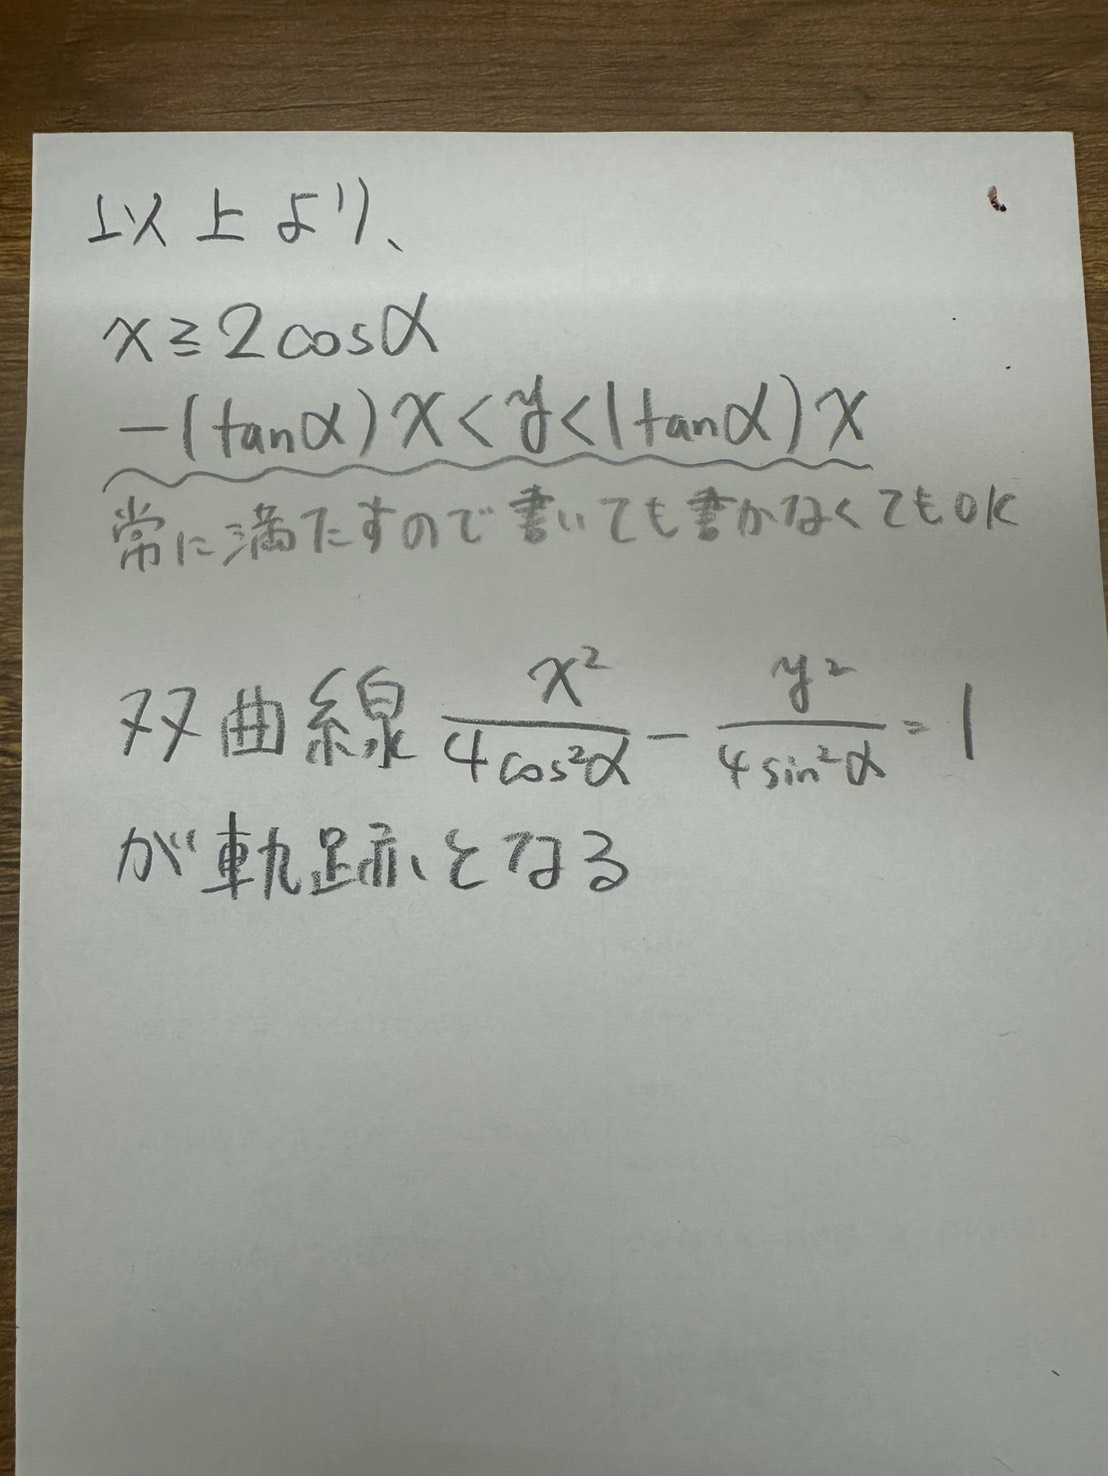 以上より、
x≧2cosα
-(tanα)x<y<(tanα)x
常に満たすので書いても書かなくてもOK
双曲線 x²/4cos²α - y²/4sin²α = 1
が軌跡となる